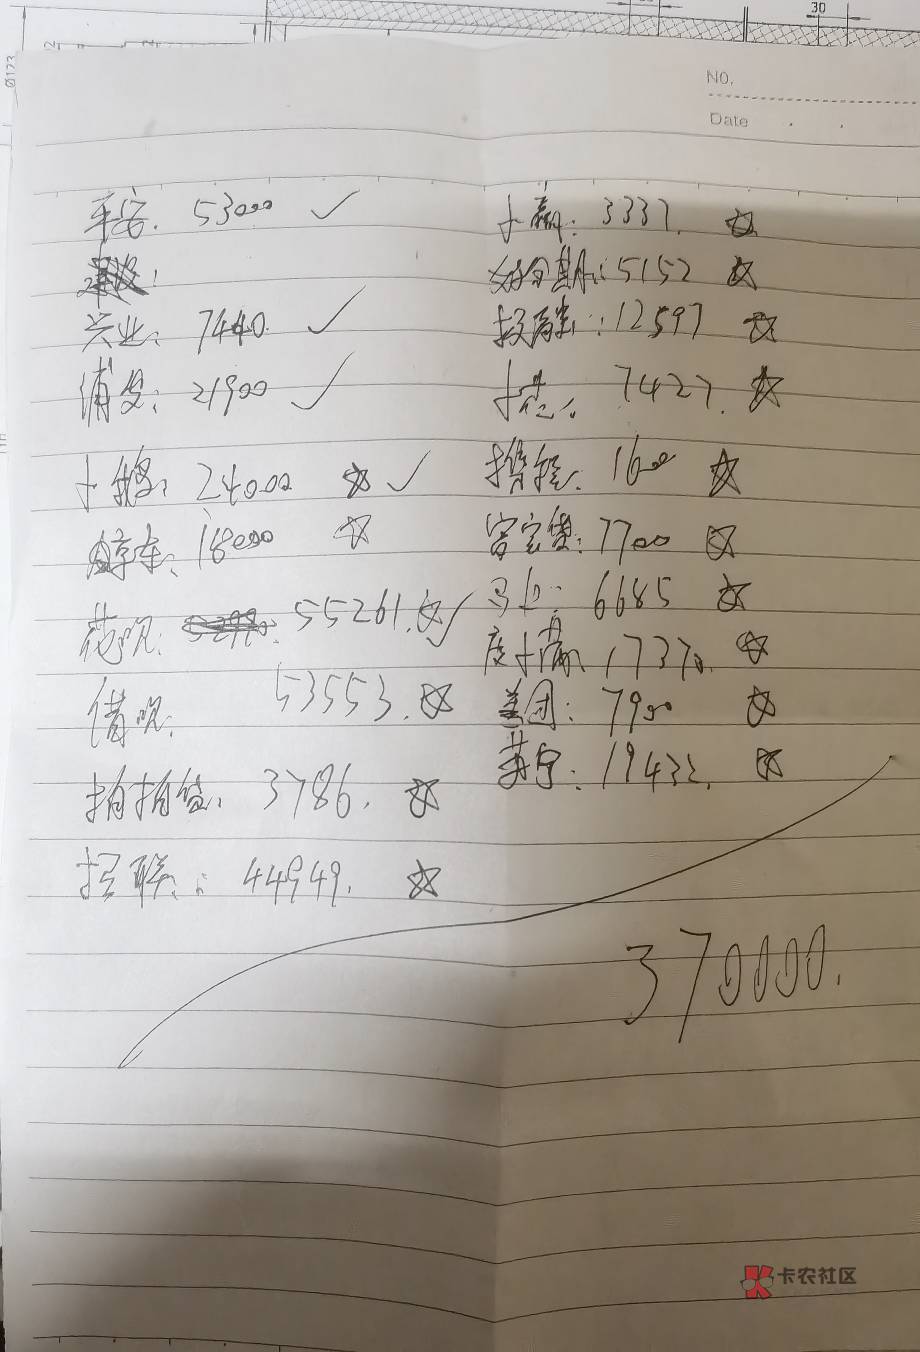 30
Ø123
NO.
Date
平安. 53000 ✓
兴业: 7440. ✓
浦发: 21900 ✓
24000 ☆ ✓
18000 ☆
花呗: 55261. ☆ ✓
借呗: 53553. ☆
拍拍贷: 3786. ☆
招联: 44949. ☆
3337. ☆
好分期: 5152 ☆
12597 ☆
7427. ☆
携程: 1600 ☆
7700 ☆
马上: 6685 ☆
度小满: 17370. ☆
美团: 7900 ☆
苏宁: 19432. ☆
370000.
卡农社区